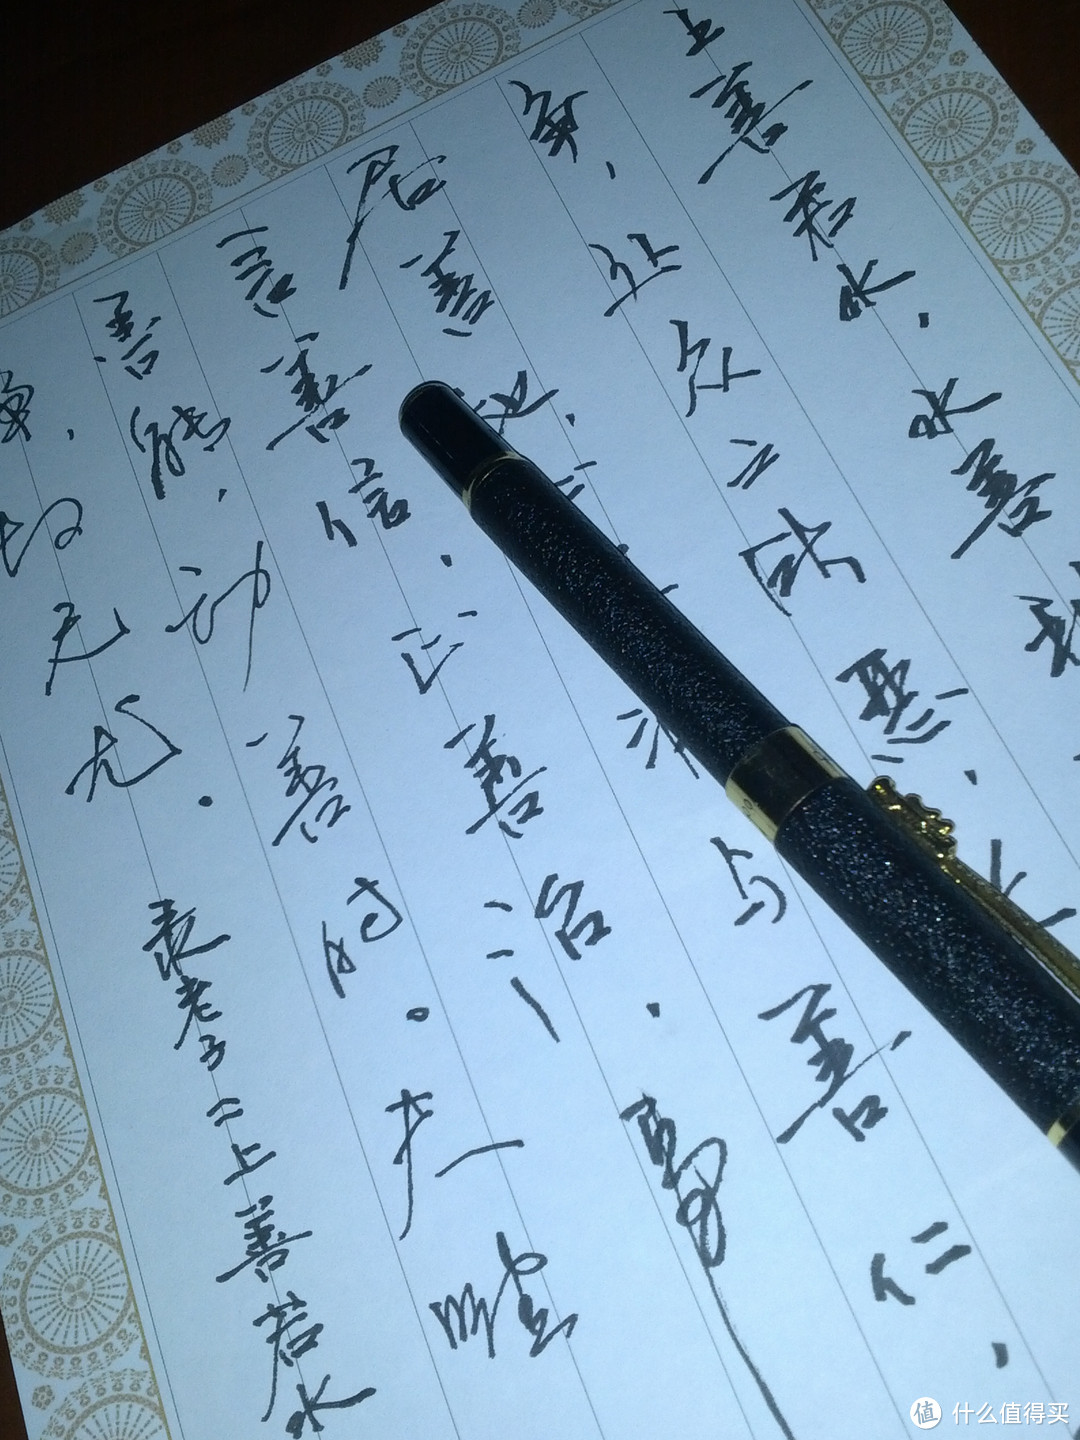 上善若水，水善
争，处众之所恶，
居善地，与善仁，
言善信，正善治，事
善能，动善时。夫唯
争，故无尤。
录老子：上善若水
值 什么值得买